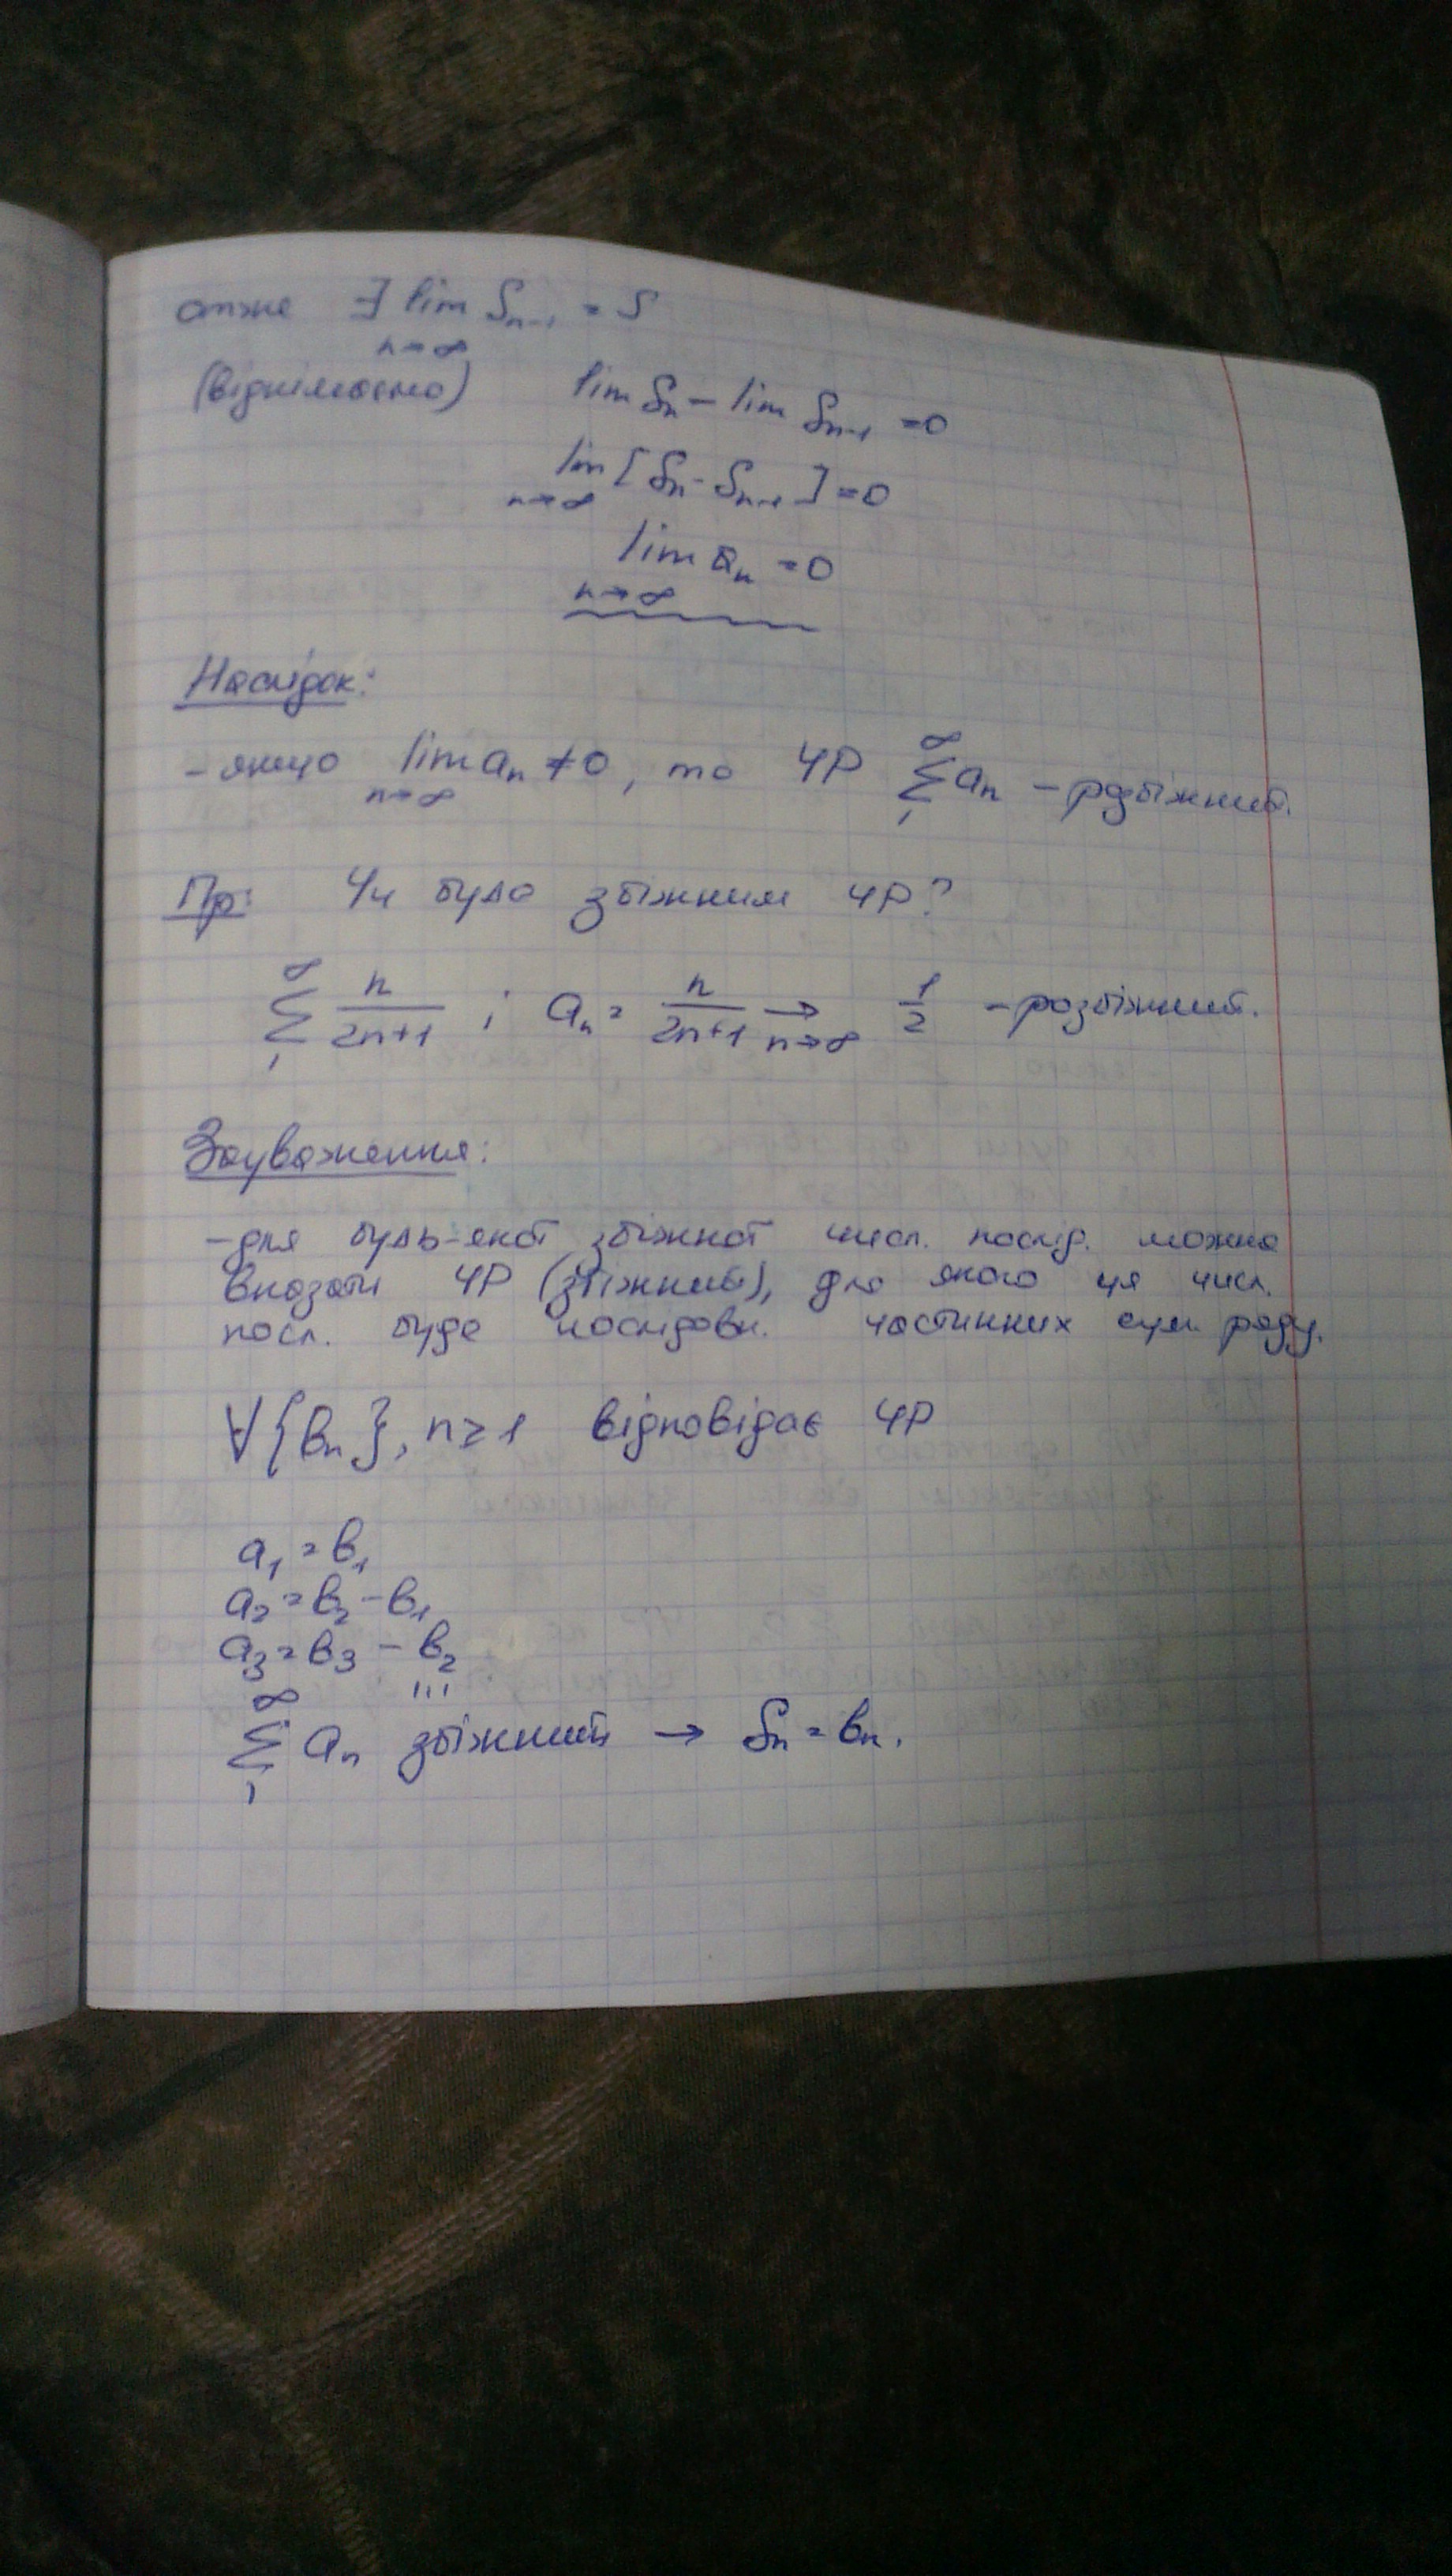 отже ∃ lim Sₙ₋₁ = S
n→∞
(віднімаємо) lim Sₙ − lim Sₙ₋₁ = 0
lim [Sₙ - Sₙ₋₁] = 0
n→∞
lim aₙ = 0
n→∞
Наслідок:
- якщо lim aₙ ≠ 0, то ЧР ∑₁^∞ aₙ - розбіжний.
n→∞
Пр: Чи буде збіжним ЧР?
∑₁^∞ n/(2n+1) ; aₙ = n/(2n+1) → 1/2 - розбіжний.
n→∞
Зауваження:
- для будь-якої збіжної числ. послід. можна
вказати ЧР (збіжний), для якого ця числ.
посл. буде послідовн. частинних сум ряду.
∀{bₙ}, n≥1 відповідає ЧР
a₁ = b₁
a₂ = b₂ - b₁
a₃ = b₃ - b₂
...
∑₁^∞ aₙ збіжний → Sₙ = bₙ.